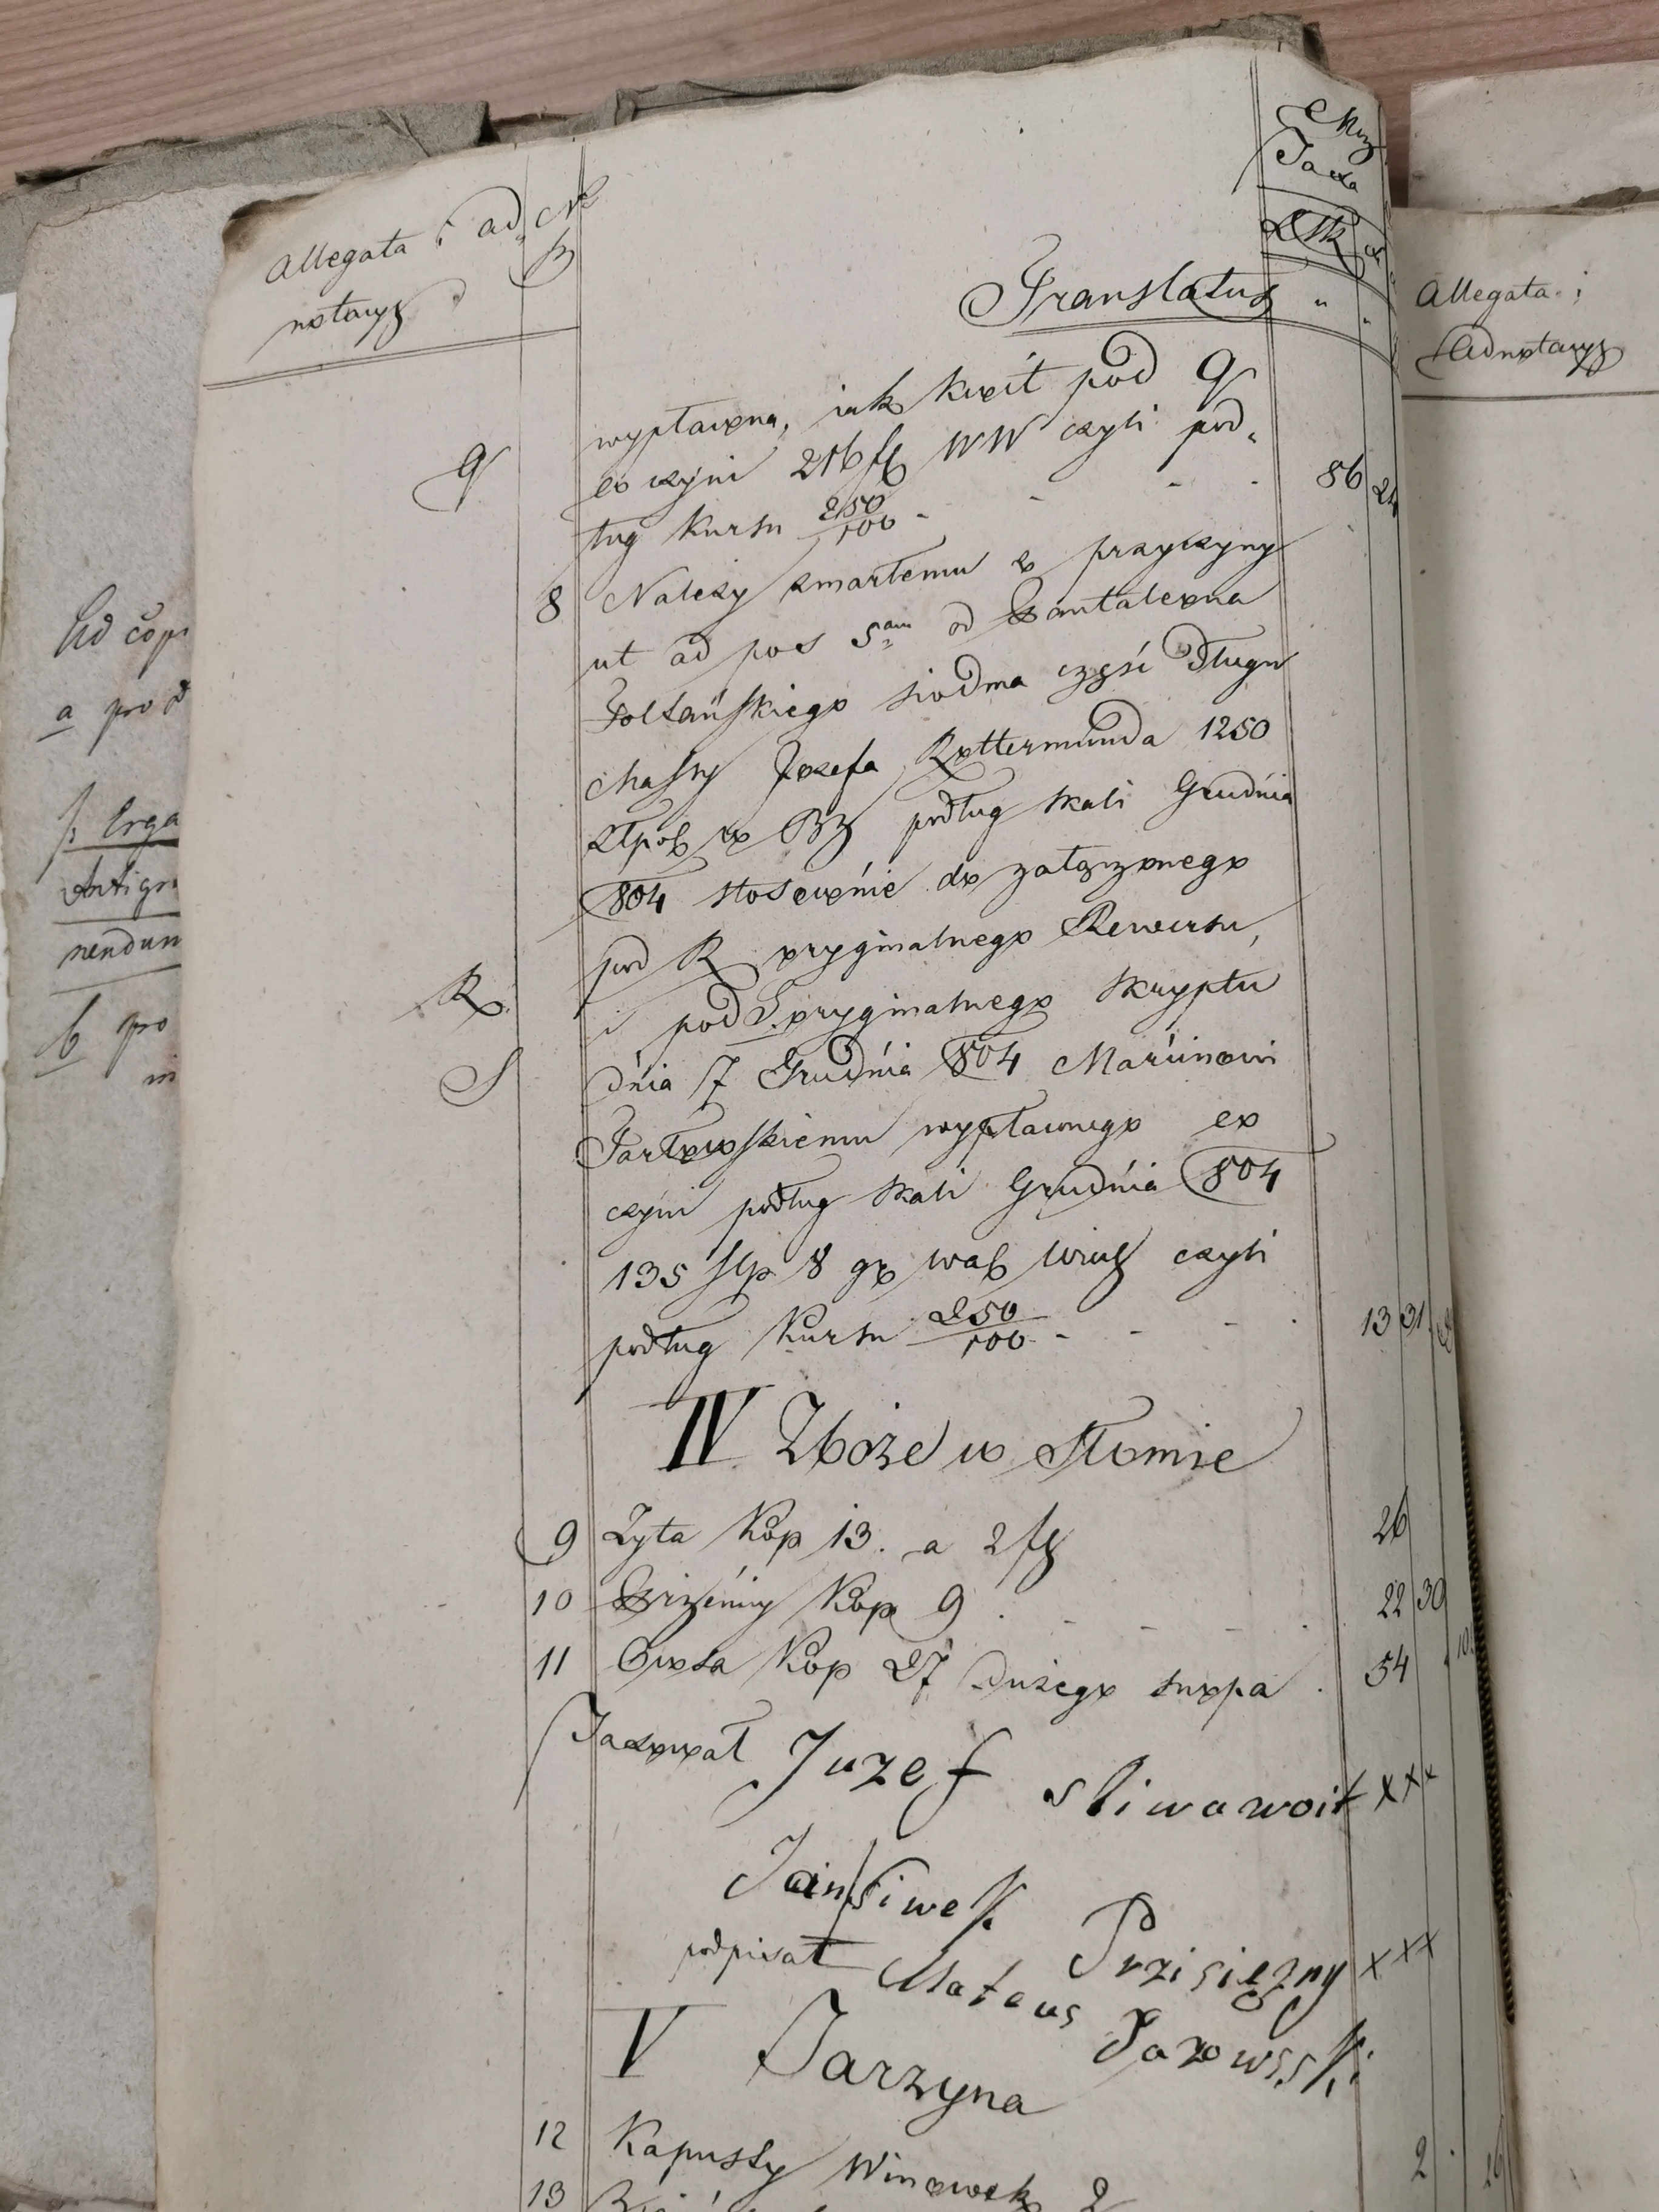 Allegata i ad
notacye
Taxa
Translatus " "
wypłacona, iak kwit pod Q
Q
co czyni 216 fl WW czyli pod„
ług kursu 250/100 - - - . 86 24
8 Należy zmarłemu z przyczyny
ut ad pos 5am od Pantaleona
Żołtańskiego siodma część długu
Massy Jozefa Rottermunda 1250
złpol w Bz podług skali Grudnia
804 stosownie do załączonego
pod R oryginalnego Rewersu,
R.
i pod S. oryginalnego skryptu
S
dnia 7 Grudnia 804 Marcinowi
Tarłowskiemu wypłaconego co
czyni podług skali Grudnia 804
135 flp 8 gr wal wied czyli
podług kursu 250/100 - - - . 13 31
IV Zboże w Słomie
9 Żyta Kop 13. a 2 fl 26
10 Pszenicy Kop 9 . - - - . 22 30
11 Owsa Kop 27 dużego snopa . 54
Taxował Juzef sliwa woit xxx
Jan Siwek Przisiężny xxx
podpisał Mateus
V Jarzyna
12 Kapusty 2 2
13
Allegata i
Adnotacye
Ad
a pro
/: Erga
Antigr
nendum
b pro